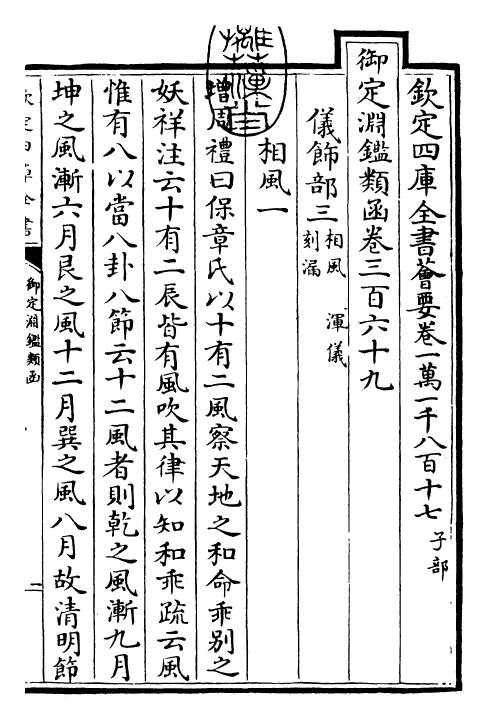 欽定四庫全書薈要卷一萬一千八百十七 子部
御定淵鑑類函卷三百六十九
儀飾部三 相風 渾儀 刻漏
相風一
增周禮曰保章氏以十有二風察天地之和命乖别之
妖祥注云十有二辰皆有風吹其律以知和乖疏云風
惟有八以當八卦八節云十二風者則乾之風漸九月
坤之風漸六月艮之風十二月巽之風八月故清明節
欽定四庫全書
御定淵鑑類函
一